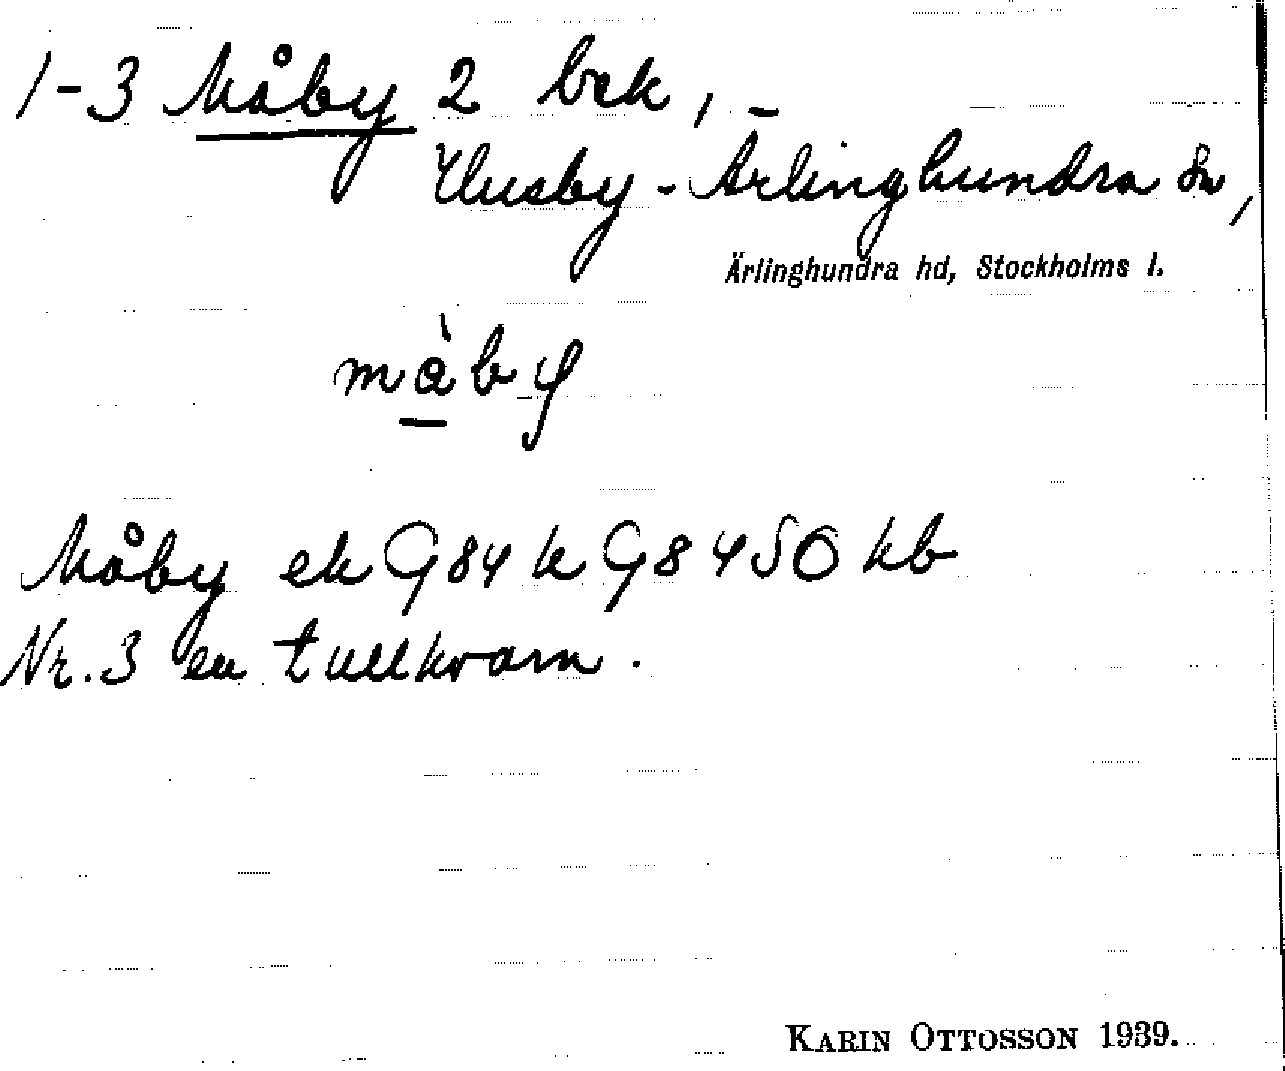 1-3 Måby 2 bek, -
Husby-Ärlinghundra sn,
Ärlinghundra hd, Stockholms l.
mà̱by
Måby ek G84 k G8450 kb
Nr. 3 en tullkvarn.
KARIN OTTOSSON 1939.